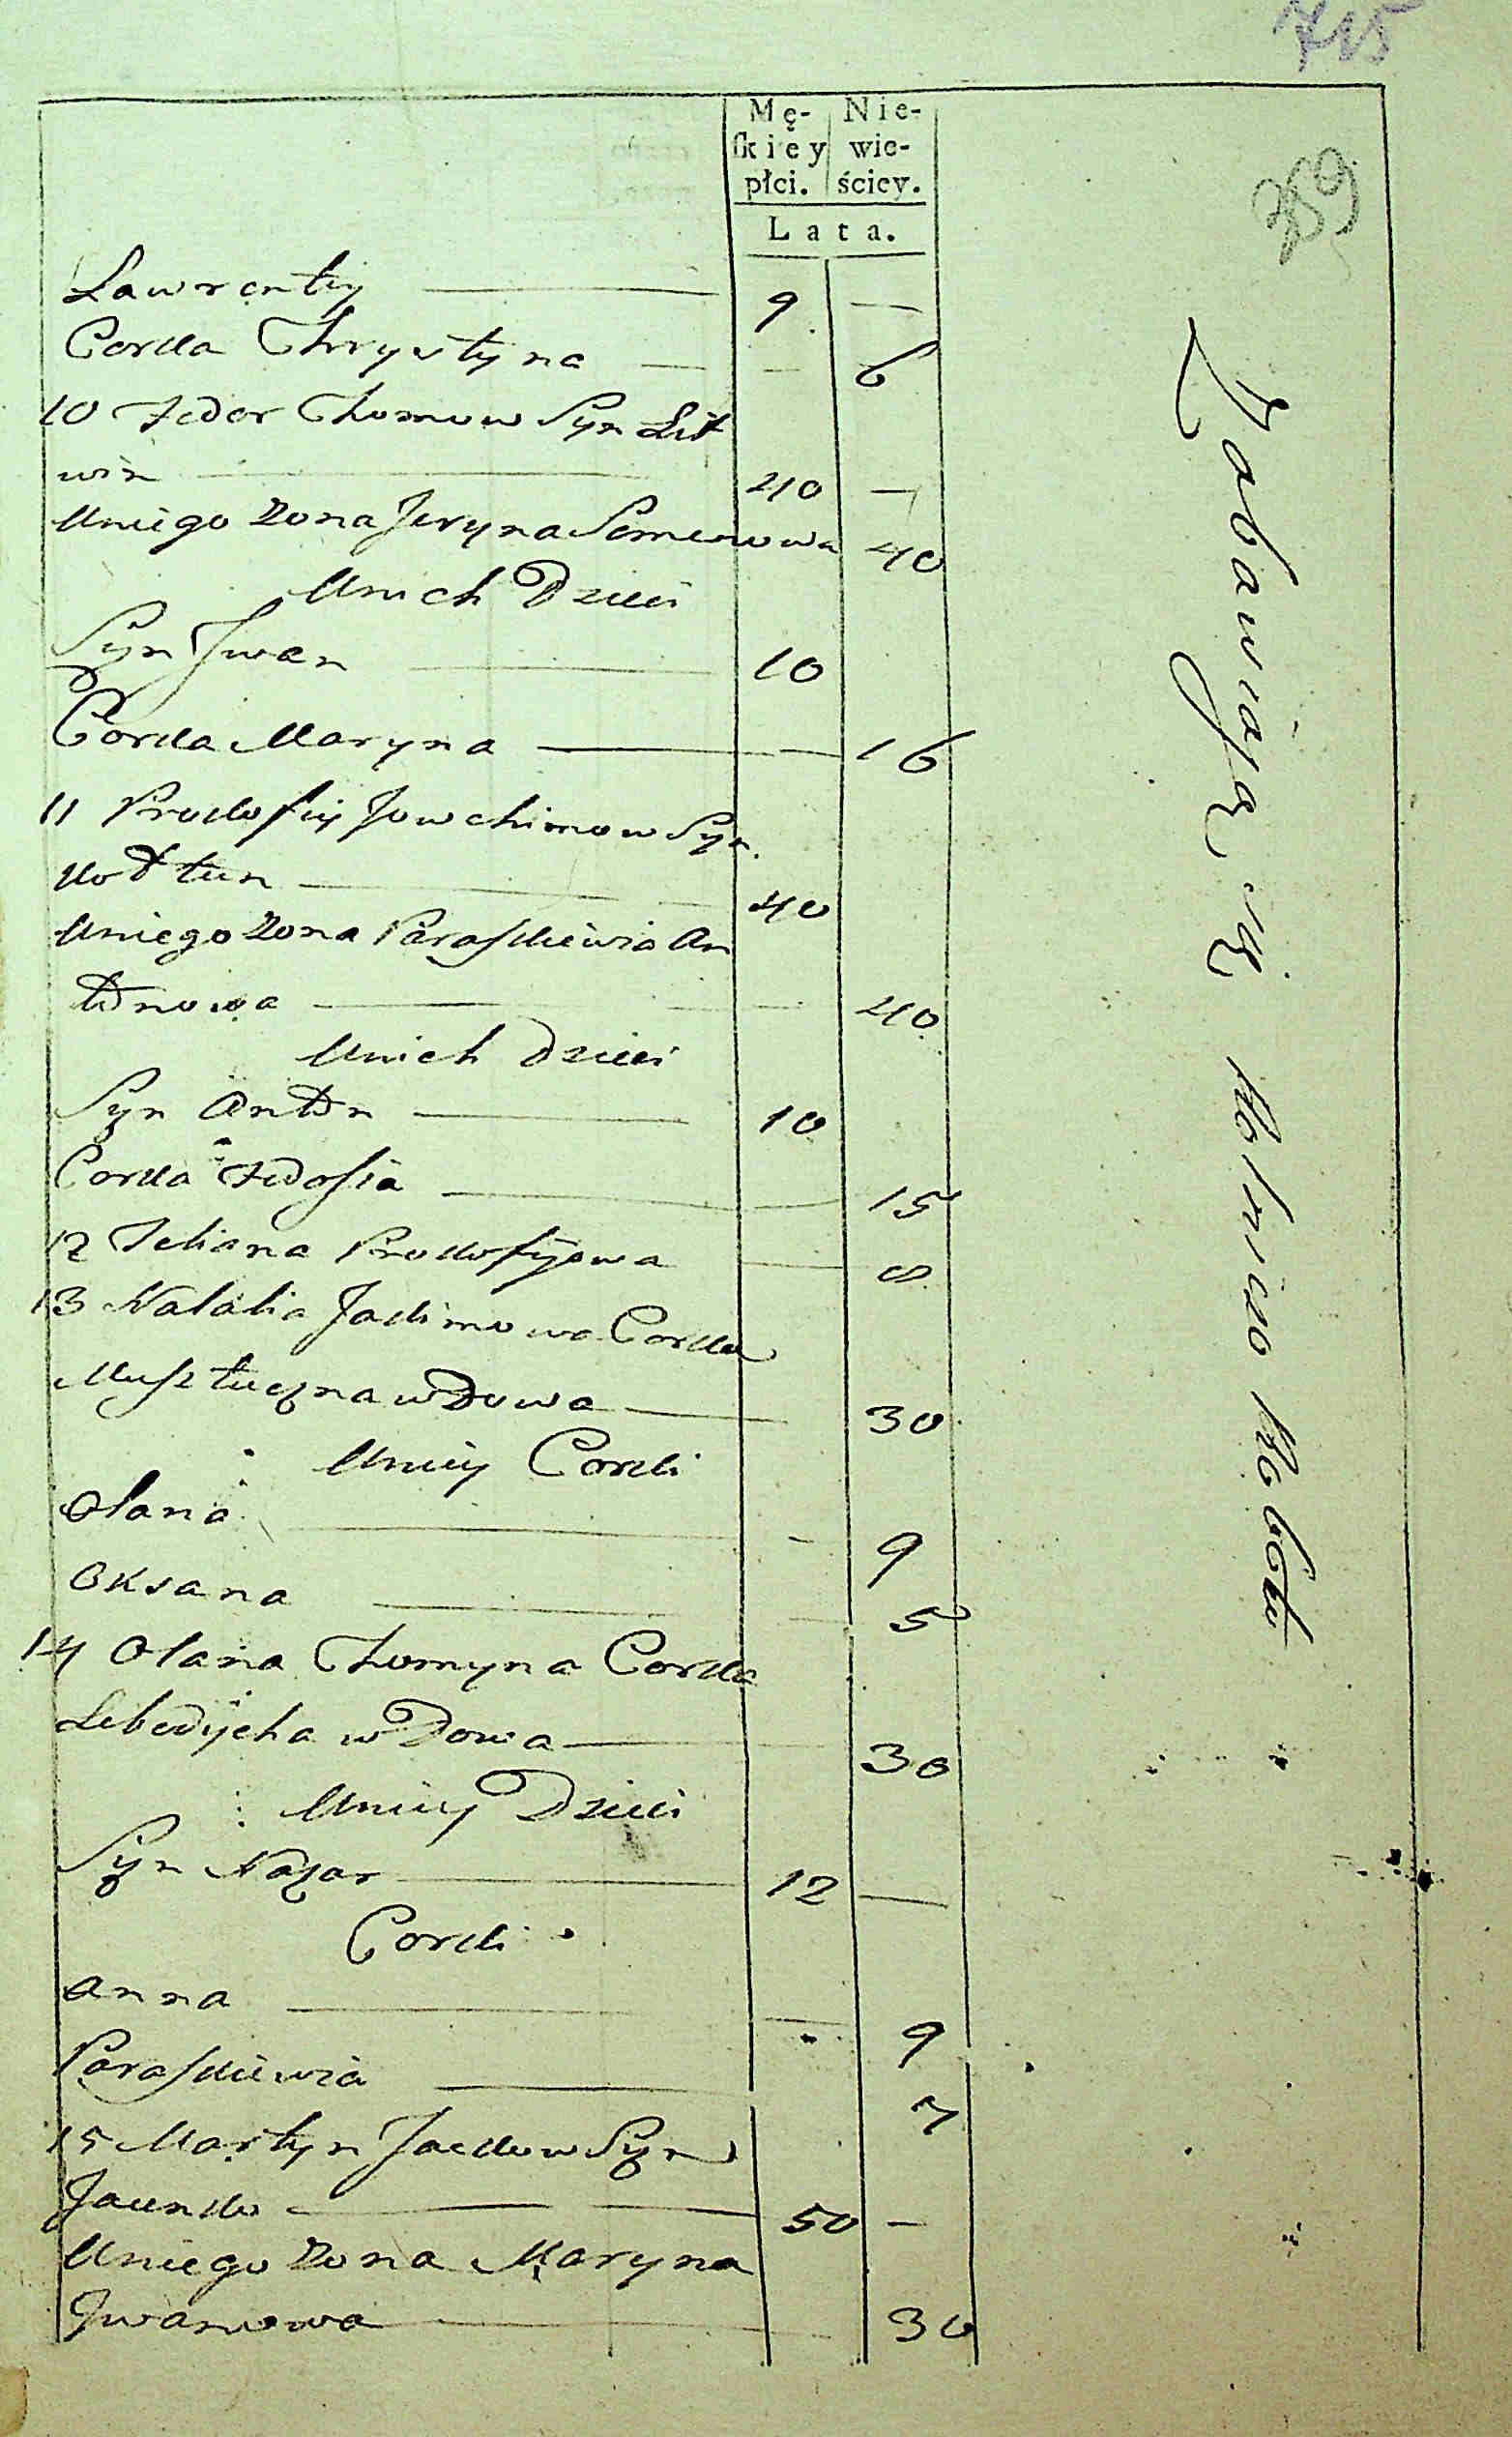 715
359
Mę- Nie-
ſkiey wie-
płci. ściey.
Lata.
Lawrentiy — 9 —
Corka Chrystyna — — 6
10 Fedor Thomow Syn Lit
win — 40 —
Uniego Zona Jeryna Semenowa 40
Unich Dzieci
Syn Jwan — 10
Corka Maryna — — 16
11 Prokofiy Jowchimow Syn
Kołtun — 40
Uniego Zona Paraskiewia An
tonowa — — 40
Unich Dzieci
Syn Anton — 10
Corka Fedosia — — 15
12 Teliana Prokofijowa — 8
13 Natalia Jakimowa Corka
wdowa — — 30
Unieiy Corki
Olana — - 9
Oksana — — 5
14 Olana Thomyna Corka
Lebedycha wdowa — — 30
Unieiy Dzieci
Syn Nazar — 12 —
Corki
Anna — — 9
Paraskiewia — 7
15 Martyn Jackow Syn
— 50 —
Uniego Zona Maryna
Jwanowa — — 30
Zabawiaią się